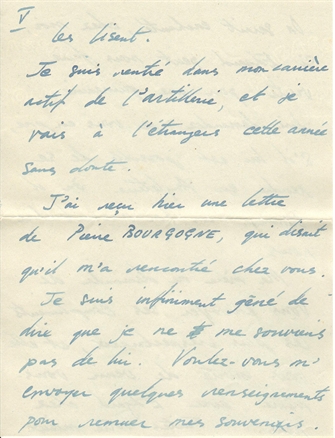 V
les lisent.
Je suis rentré dans mon carrière
actif de l'artillerie, et je
vais à l'étrangers cette année
sans doute.
J'ai reçu hier une lettre
de Pierre BOURGOGNE, qui disait
qu'il m'a rencontré chez vous.
Je suis infiniment gêné de
dire que je ne me souviens
pas de lui. Voulez-vous m'
envoyer quelques renseignements
pour remuer mes souvenirs.